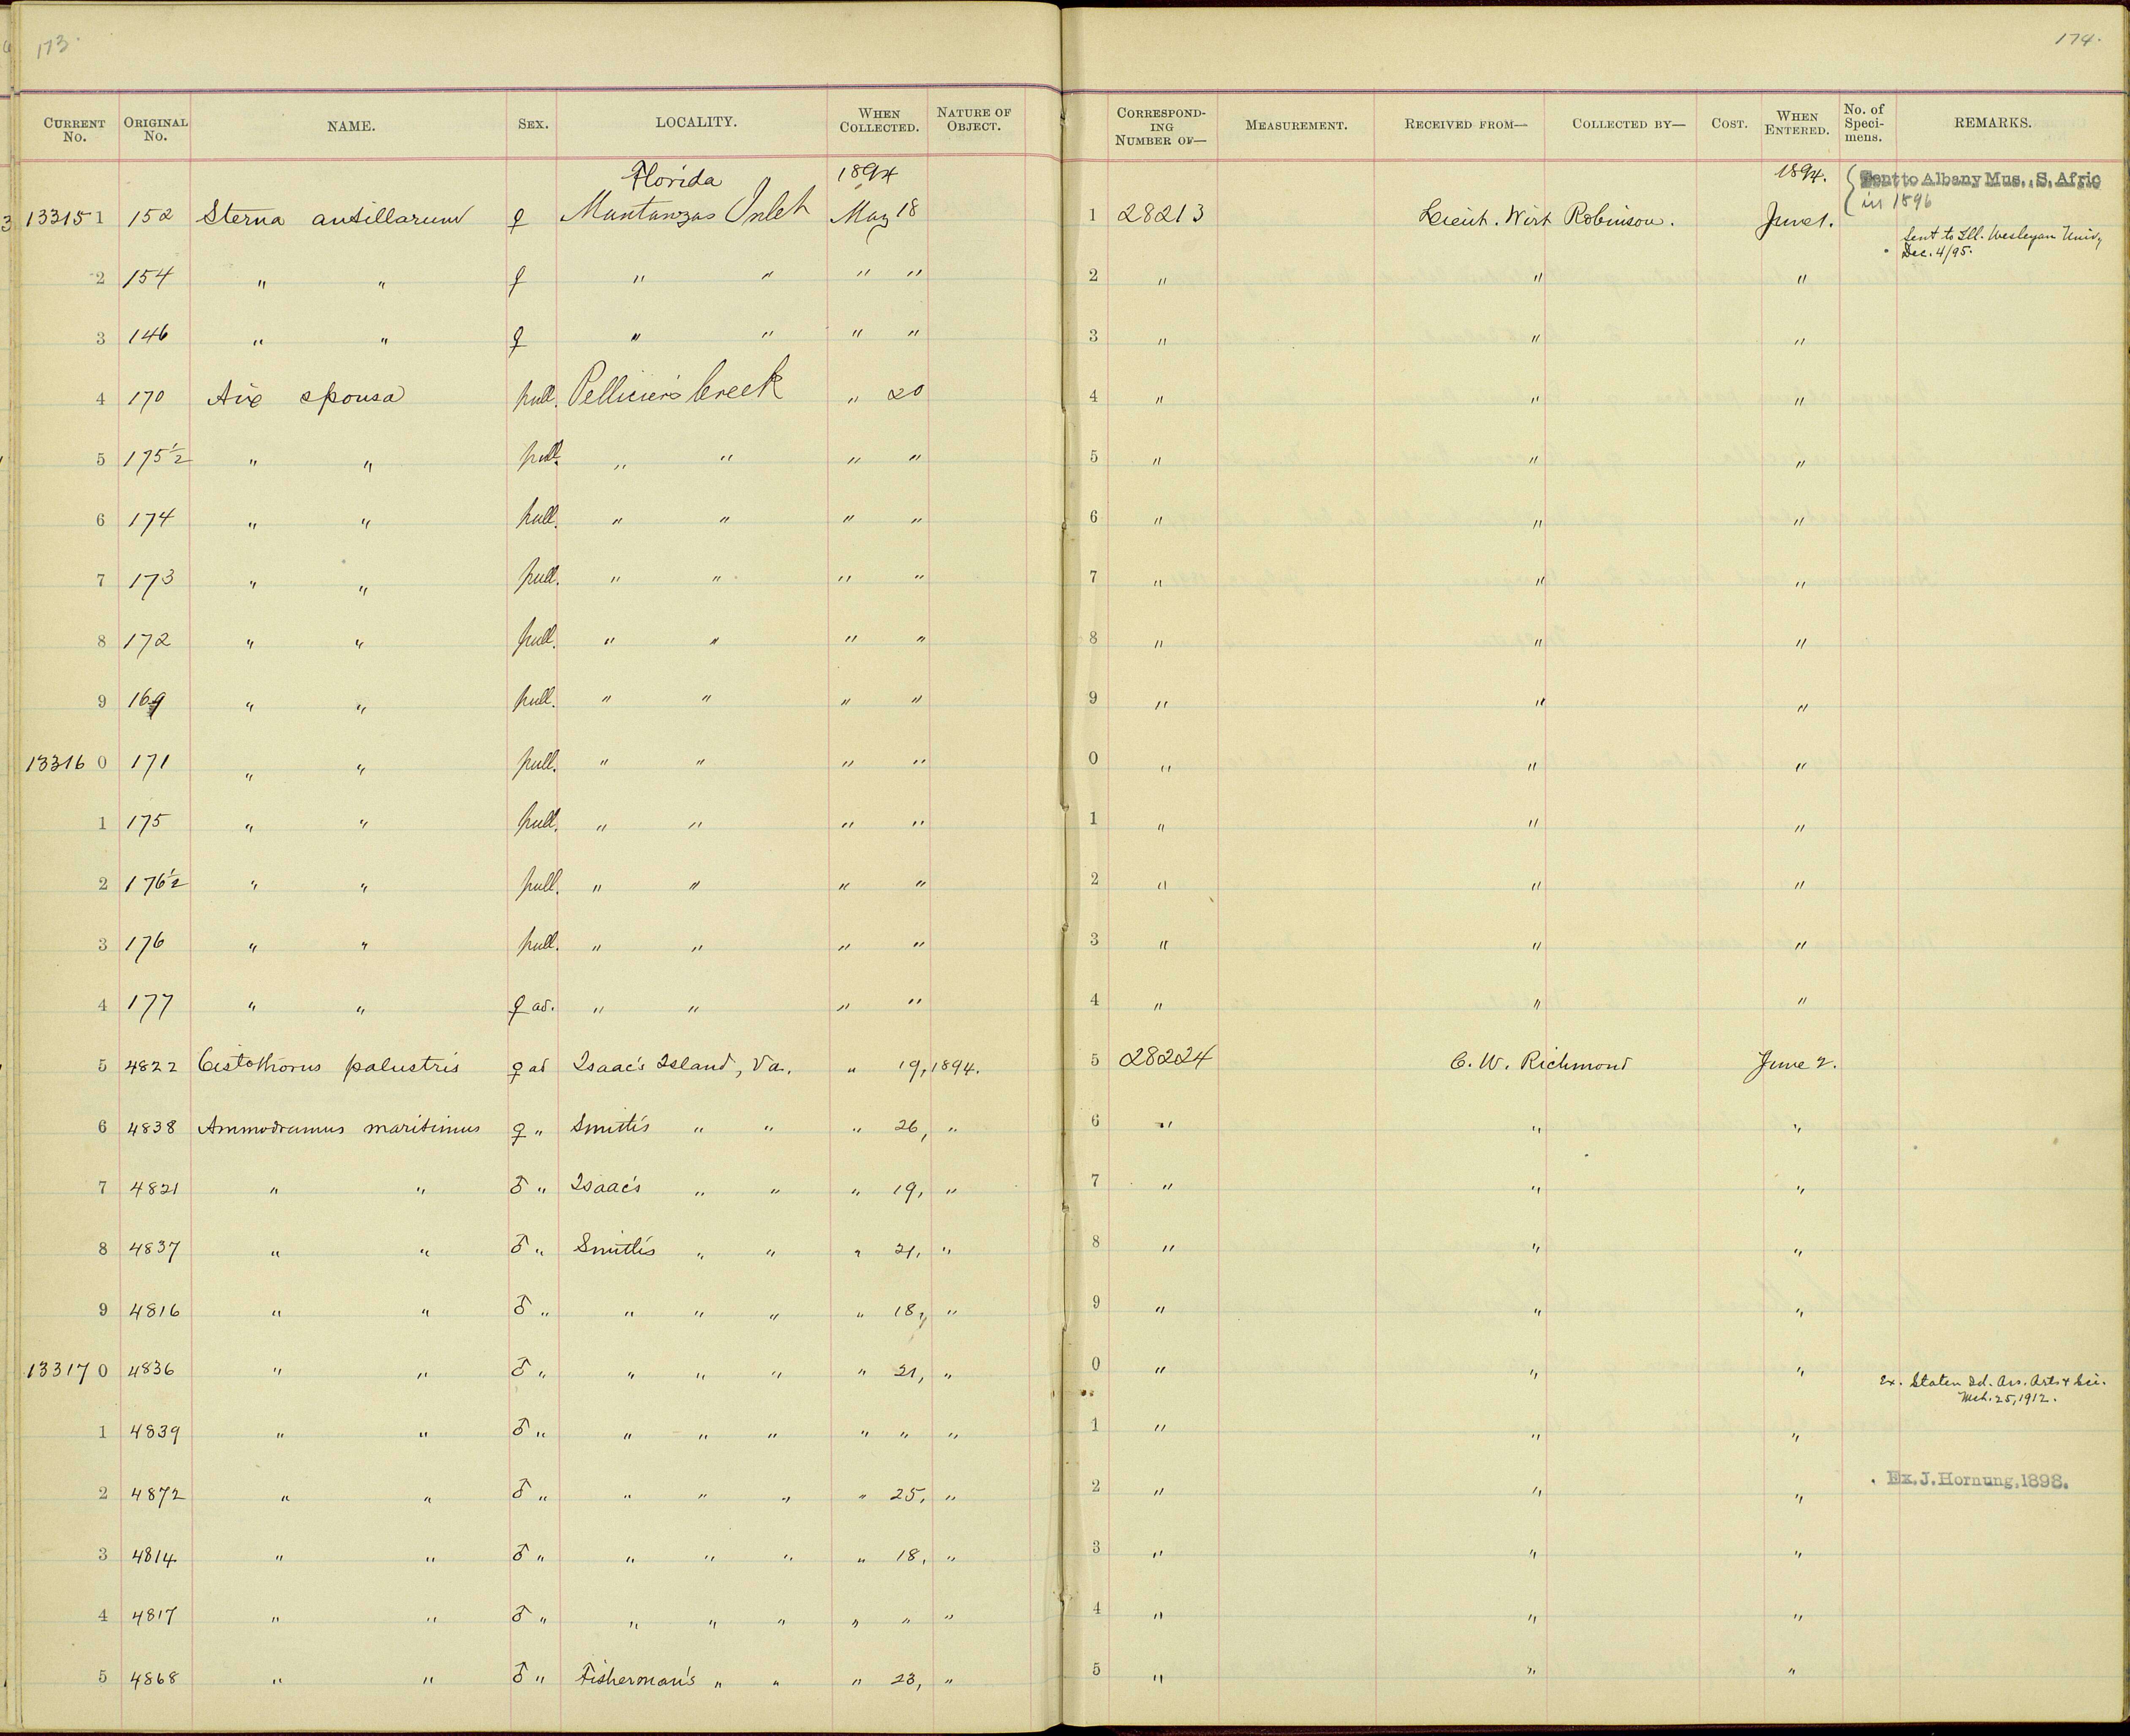 173.
174.
CURRENT No. ORIGINAL No. NAME. SEX. LOCALITY. WHEN COLLECTED. NATURE OF OBJECT. CORRESPONDING NUMBER OF— MEASUREMENT. RECEIVED FROM— COLLECTED BY— COST. WHEN ENTERED. No. of Specimens. REMARKS.
Florida 1894 1894. Sent to Albany Mus., S. Afric
in 1896
13315 1 152 Sterna antillarum ♀ Mantanzas Inlet May 18 1 28213 Lieut. Wirt Robinson. June 1.
Sent to Ill. Wesleyan Univ,
Dec. 4/95.
2 154 " " ♀ " " " " 2 " " "
3 146 " " ♀ " " " " 3 " " "
4 170 Aix sponsa pull. Pellicier's Creek " 20 4 " " "
5 175½ " " pull. " " " " 5 " " "
6 174 " " pull. " " " " 6 " " "
7 173 " " pull. " " " " 7 " " "
8 172 " " pull. " " " " 8 " " "
9 169 " " pull. " " " " 9 " " "
13316 0 171 " " pull. " " " " 0 " " "
1 175 " " pull. " " " " 1 " " "
2 176½ " " pull. " " " " 2 " " "
3 176 " " pull. " " " " 3 " " "
4 177 " " ♀ ad. " " " " 4 " " "
5 4822 Cistothorus palustris ♀ ad Isaac's Island, Va. " 19, 1894. 5 28224 C. W. Richmond June 2.
6 4838 Ammodramus maritimus ♀ " Smith's " " " 26, " 6 " " "
7 4821 " " ♂ " Isaac's " " " 19, " 7 " " "
8 4837 " " ♂ " Smith's " " " 21, " 8 " " "
9 4816 " " ♂ " " " " " 18, " 9 " " "
13317 0 4836 " " ♂ " " " " " 21, " 0 " " "
Ex. Staten Id. Ass. Arts & Sci.
Mch. 25, 1912.
1 4839 " " ♂ " " " " " " " 1 " " "
2 4872 " " ♂ " " " " " 25, " 2 " " " Ex. J. Hornung, 1898.
3 4814 " " ♂ " " " " " 18, " 3 " " "
4 4817 " " ♂ " " " " " " " 4 " " "
5 4868 " " ♂ " Fisherman's " " " 23, " 5 " " "